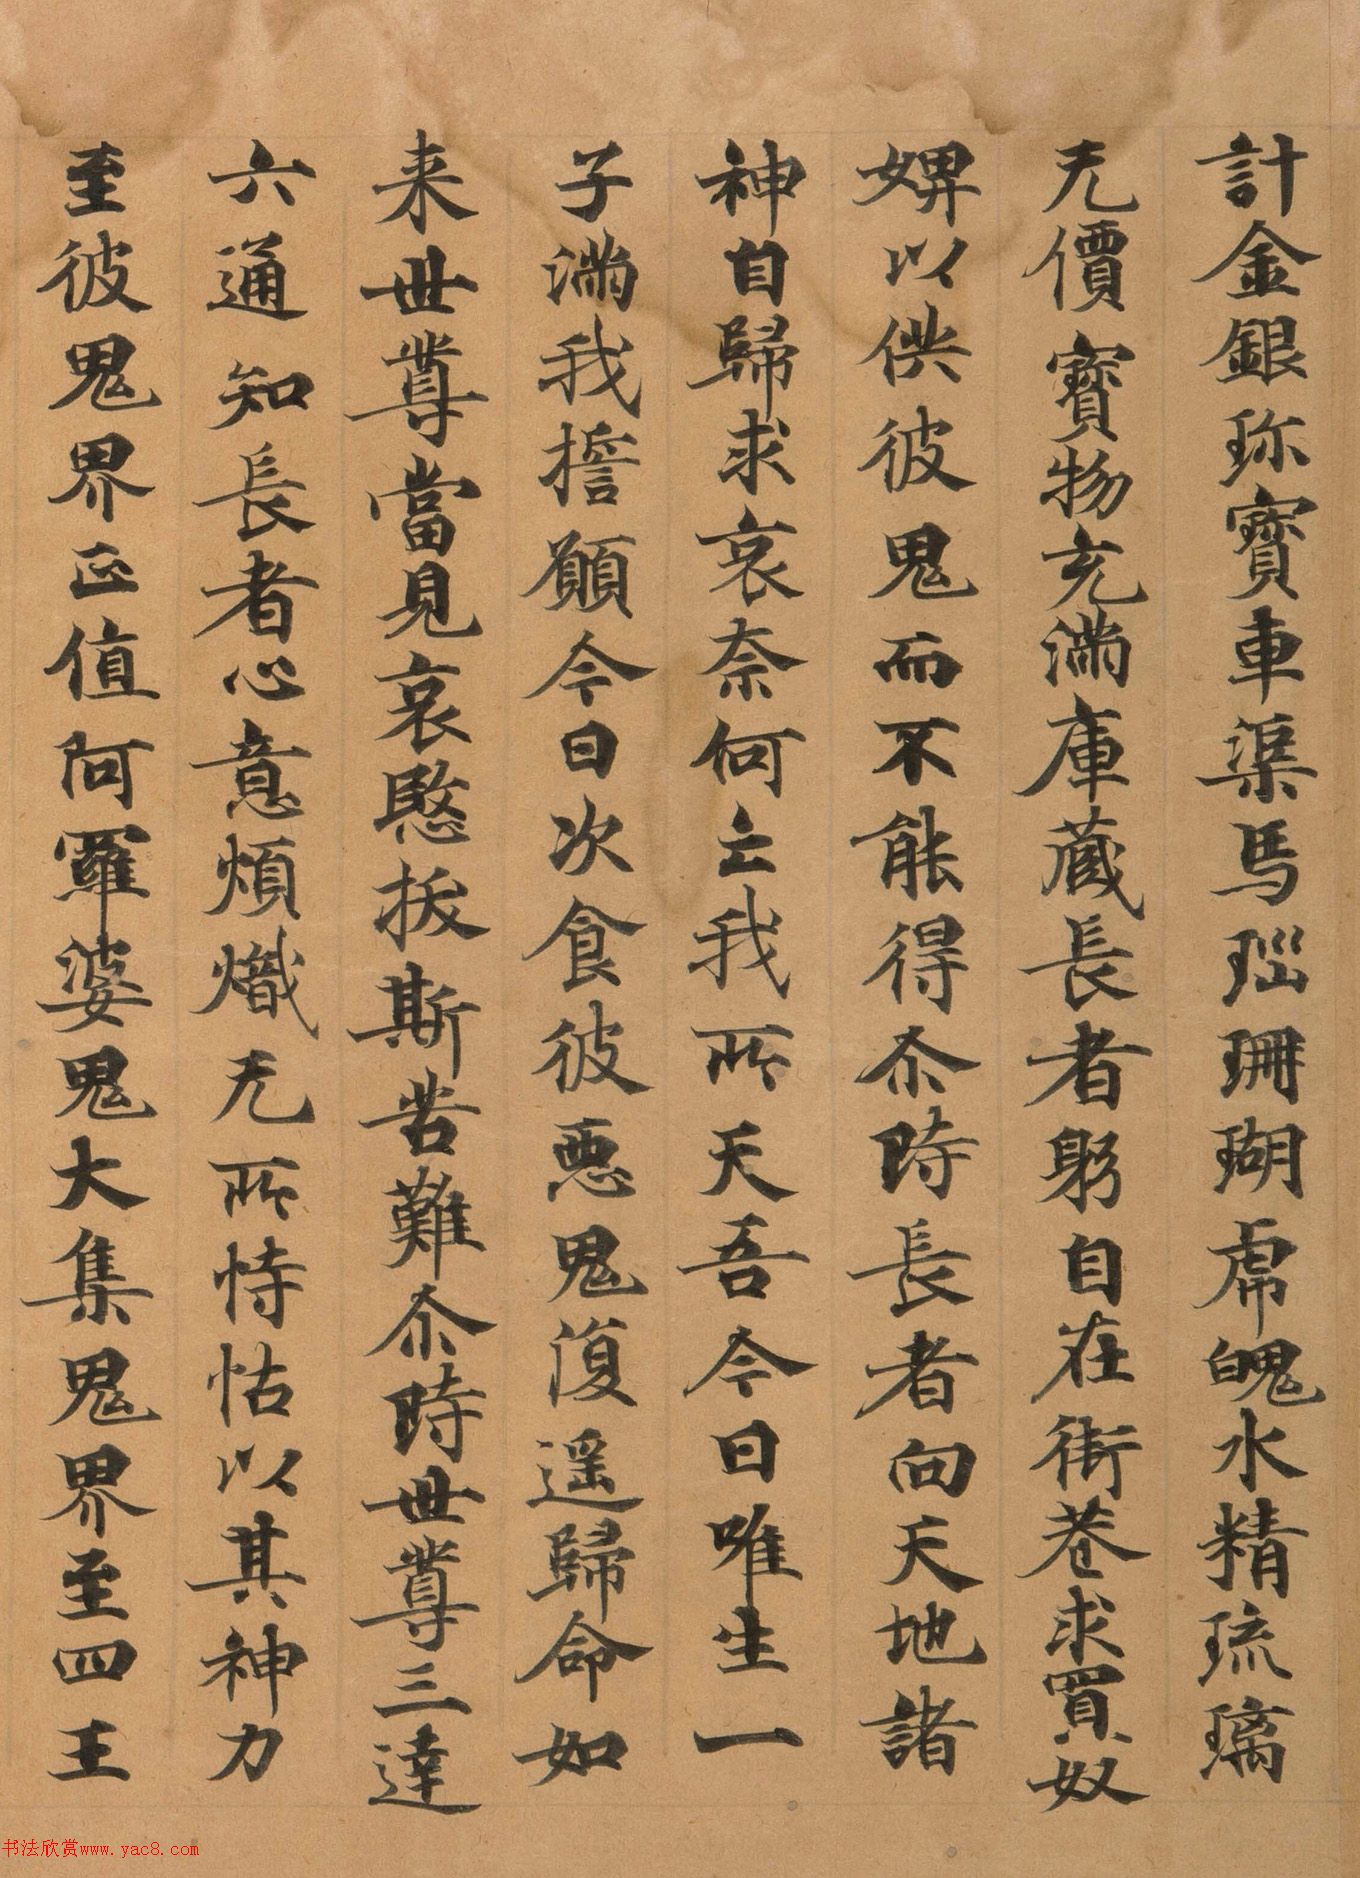 計金銀珎寶車𤦲馬瑙珊瑚虎魄水精琉璃
无價寶物充滿庫藏長者躬自在街巷求買奴
婢以供彼鬼而不能得尒時長者向天地諸
神自歸求哀奈何亡我所天吾今日唯生一
子滿我擔願今日次食彼惡鬼復遥歸命如
来世尊當見哀愍拔斯苦難尒時世尊三達
六通知長者心意煩熾无所恃怙以其神力
至彼鬼界正值阿羅婆鬼大集鬼界至四王
书法欣赏www.yac8.com